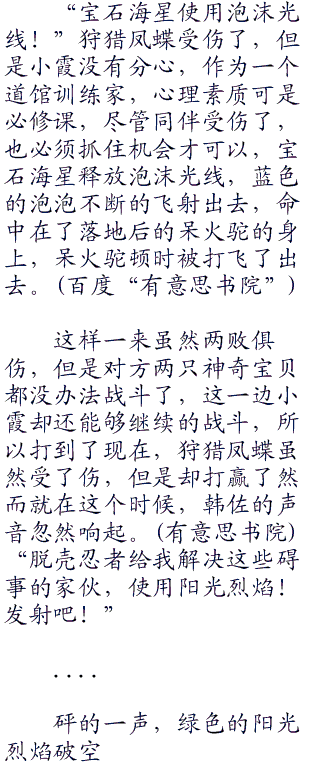 “宝石海星使用泡沫光
线！”狩猎凤蝶受伤了，但
是小霞没有分心，作为一个
道馆训练家，心理素质可是
必修课，尽管同伴受伤了，
也必须抓住机会才可以，宝
石海星释放泡沫光线，蓝色
的泡泡不断的飞射出去，命
中在了落地后的呆火驼的身
上，呆火驼顿时被打飞了出
去。(百度“有意思书院”)
这样一来虽然两败俱
伤，但是对方两只神奇宝贝
都没办法战斗了，这一边小
霞却还能够继续的战斗，所
以打到了现在，狩猎凤蝶虽
然受了伤，但是却打赢了然
而就在这个时候，韩佐的声
音忽然响起。(有意思书院)
“脱壳忍者给我解决这些碍
事的家伙，使用阳光烈焰！
发射吧！”
....
砰的一声，绿色的阳光
烈焰破空